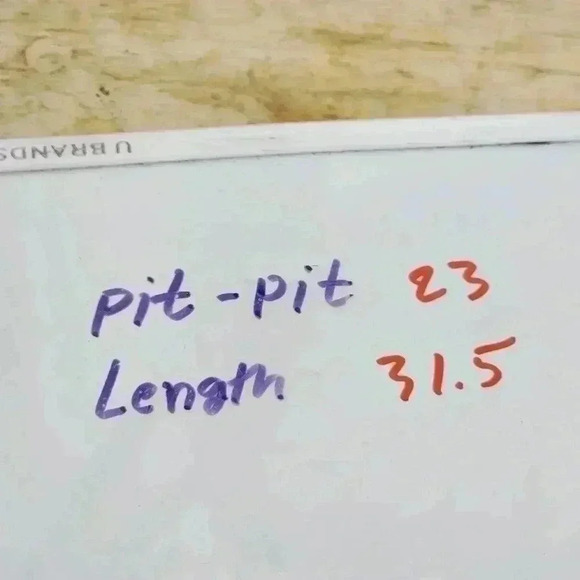 U BRANDS
pit-pit 23
Length 31.5